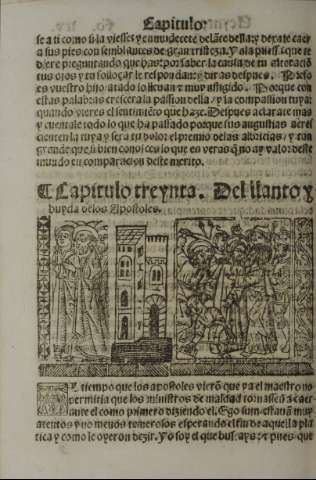 Capitulo
se a ti como si la viesses y enmudecete delāte della: y dexate caer
a sus pies con semblantes de gran tristeza. Y ala priessa que te
diere preguntando que
tus ojos y tu solloçar le respondan: y diras despues.
es vuestro hijo atado lo lleuan y muy affligido. Porque con
estas palabras crescera la passion della / y la compassion tuya:
quando vieres el sentimiēto que haze. Despues aclarate mas
y cuentale todo lo que ha passado porque sus angustias acre
cienten la tuya y sera tu dolor el premio delas albricias / y tan
grande que si bien conosces lo que en veras q̄ no ay valor deste
mundo en comparacion deste merito.
¶ Capitulo treynta. Del llanto y
huyda delos Apostoles.
tiempo que los apostoles vierō que ya el maestro
permitia que los ministros de maldad tornassen a caer
ante el como primero diziendo el. Ego sum. estauā muy
atentos y no menos temerosos esperando el fin de aquella pla
tica y como le oyeron dezir. Yo soy el que buscays: pues que